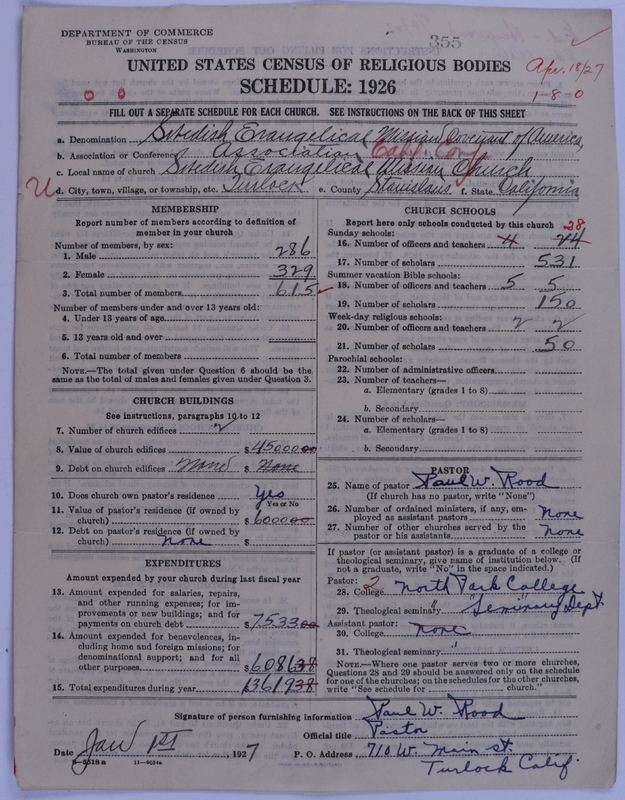 DEPARTMENT OF COMMERCE
BUREAU OF THE CENSUS
WASHINGTON
355
UNITED STATES CENSUS OF RELIGIOUS BODIES
Apr. 18/27
SCHEDULE: 1926
1-8-0
0 0
FILL OUT A SEPARATE SCHEDULE FOR EACH CHURCH. SEE INSTRUCTIONS ON THE BACK OF THIS SHEET
a. Denomination Swedish Evangelical Mission Covenant of America,
b. Association or Conference Association Calif. Conf.
c. Local name of church Swedish Evangelical Mission Church
U d. City, town, village, or township, etc. Turlock e. County Stanislaus f. State California
MEMBERSHIP
Report number of members according to definition of member in your church
Number of members, by sex:
1. Male 286
2. Female 329
3. Total number of members 615
Number of members under and over 13 years old:
4. Under 13 years of age
5. 13 years old and over
6. Total number of members
NOTE.—The total given under Question 6 should be the same as the total of males and females given under Question 3.
CHURCH BUILDINGS
See instructions, paragraphs 10 to 12
7. Number of church edifices 2
8. Value of church edifices $45000 00
9. Debt on church edifices None $ None
10. Does church own pastor's residence Yes
Yes or No
11. Value of pastor's residence (if owned by church) $6000 00
12. Debt on pastor's residence (if owned by church) none $
EXPENDITURES
Amount expended by your church during last fiscal year
13. Amount expended for salaries, repairs, and other running expenses; for improvements or new buildings; and for payments on church debt $7533 00
14. Amount expended for benevolences, including home and foreign missions; for denominational support; and for all other purposes $6086 38
15. Total expenditures during year 13619 38
CHURCH SCHOOLS
Report here only schools conducted by this church
Sunday schools: 28
16. Number of officers and teachers 4 24
17. Number of scholars 531
Summer vacation Bible schools:
18. Number of officers and teachers 5 5
19. Number of scholars 150
Week-day religious schools:
20. Number of officers and teachers 2 2
21. Number of scholars 50
Parochial schools:
22. Number of administrative officers
23. Number of teachers—
a. Elementary (grades 1 to 8)
b. Secondary
24. Number of scholars—
a. Elementary (grades 1 to 8)
b. Secondary
PASTOR
25. Name of pastor Paul W. Rood
(If church has no pastor, write "None")
26. Number of ordained ministers, if any, employed as assistant pastors None
27. Number of other churches served by the pastor or his assistants None
If pastor (or assistant pastor) is a graduate of a college or theological seminary, give name of institution below. (If not a graduate, write "No" in the space indicated.)
Pastor: 2
28. College North Park College
29. Theological seminary " " Seminary Dept
Assistant pastor:
30. College none
31. Theological seminary "
NOTE.—Where one pastor serves two or more churches, Questions 28 and 29 should be answered only on the schedule for one of the churches; on the schedules for the other churches, write "See schedule for church."
Signature of person furnishing information Paul W. Rood
Official title Pastor
Date Jan 1st, 1927 P. O. Address 710 W. Main st.
Turlock Calif.
8-5518 a 11-9054a